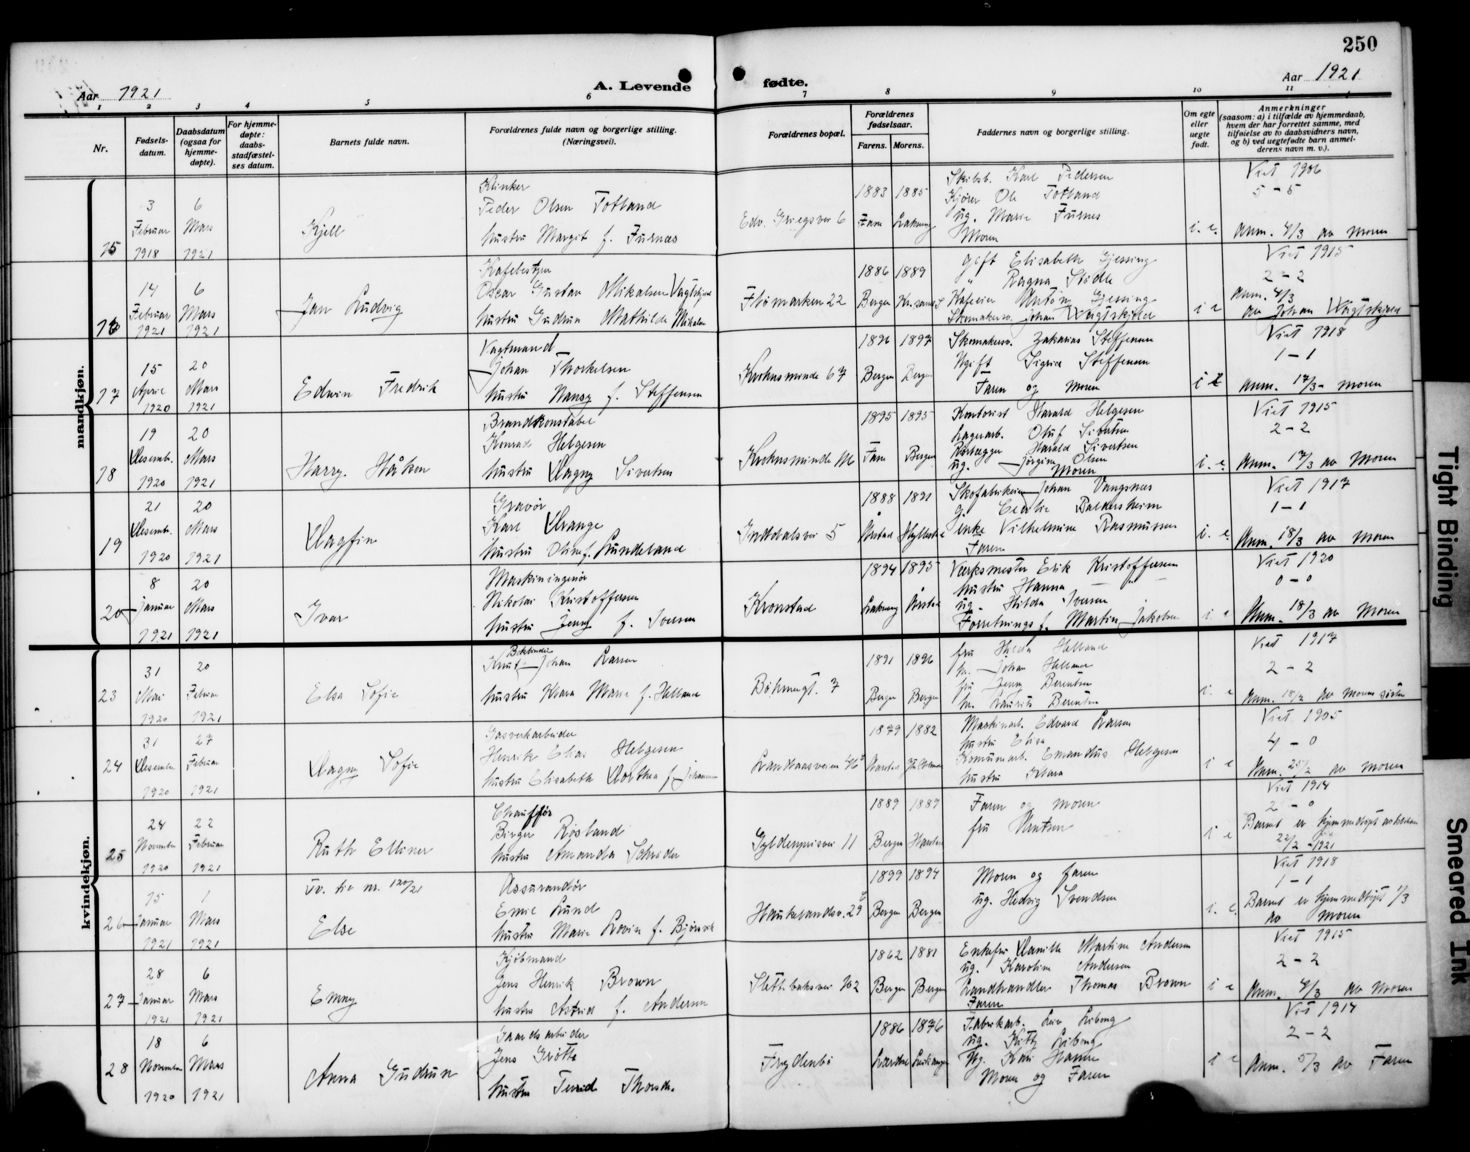 250
Aar 1921
A. Levende fødte.
Aar 1921
1 2 3 4 5 6 7 8 9 10 11
Nr.
Fødsels-
datum.
Daabsdatum
(ogsaa for
hjemme-
døpte).
For hjemme-
døpte:
daabs-
stadfæstel-
ses datum.
Barnets fulde navn.
Forældrenes fulde navn og borgerlige stilling.
(Næringsvei).
Forældrenes bopæl.
Forældrenes
fødselsaar.
Farens. Morens.
Faddernes navn og borgerlig stilling.
Om egte
eller
uegte
født.
Anmerkninger
(saasom: a) i tilfælde av hjemmedaab,
hvem der har forrettet samme, med
tilføielse av to daabsvidners navn,
og b) ved uegtefødte barn anmel-
derens navn m. v.).
mandkjøn.
15
3
Februar
1918
6
Mars
1921
Kjell
Klinker
Peder Olsen Totland
hustru Margit f. Furnes
Edv. Griegsvei 6
1883 1885
Fane
Karl Pedersen
Kjører Ole Totland
ug. Marie Furnes
Moren
i. e.
Viet 1906
5 - 5
Anm. 4/3 av moren
16
14
Februar
1921
6
Mars
1921
Jan Ludvig
Oscar Gustav Mikalsen
hustru Gudrun Mathilde
Flømarken 22
1886 1889
Bergen
gift Elisabeth Gjessing
" Ragna
Anton Gjessing
Johan
i e
Viet 1915
2 - 2
Anm. 4/3
av Johan
17
15
April
1920
20
Mars
1921
Edvin Fredrik
Vagtmand
Johan Thorkelsen
hustru Nansy f. Steffensen
67
1896 1897
Bergen Bergen
Zakarias Steffensen
Sigrid Steffensen
Faren og moren
i e
Viet 1918
1 - 1
Anm. 17/3 - moren
18
19
Desemb.
1920
20
Mars
1921
Harry Håkon
Brandkonstabel
Konrad Helgesen
hustru Dagny Sivertsen
1895 1895
Fane Bergen
Kontorist Harald Helgesen
Lagerarb. Oluf Sivertsen
Harald Sivertsen
ug. Jørgine Olsen
Moren
i. e.
Viet 1915
2 - 2
Anm. 17/3 av Moren
19
21
Desemb.
1920
20
Mars
1921
Dagfin
Gravør
Karl Drange
hustru Olina f. Lundeland
5
1888 1891
Johan Vangsnes
enke Vilhelmine Rasmussen
Faren
i. e.
Viet 1917
1 - 1
Anm. 18/3 av moren
20
8
Januar
1921
20
Mars
1921
Ivar
Maskiningeniør
Nikolai Kristoffersen
hustru Jenny f. Iversen
Kronstad
1894 1895
Verksmester Erik Kristoffersen
hustru Hanna
ug. Hilda Iversen
Martin Jakobsen
i e
Viet 1920
0 - 0
Anm. 18/3 av Moren
kvindekjøn.
23
31
Mai
1920
20
Februar
1921
Elsa Sofie
Johan Larsen
hustru Klara Marie f. Halland
Bøhmergt. 7
1891 1896
Bergen Bergen
fru Hilda Halland
hr. Johan Halland
fru Jenny Berentsen
hr. Lauritz Berentsen
i. e
Viet 1917
2 - 2
Anm. 18/2 av Morens søster
24
31
Desember
1920
27
Februar
1921
Dagny Sofie
Gasverkarbeider
Henrik Elias Helgesen
hustru Elisabeth Dorthea f. Johannesen
Landaasveien
1879 1882
Maskinarb. Edvard Larsen
hustru Elisa
Emandus Helgesen
hustru Klara
i e
Viet 1905
4 - 0
Anm. 25/2 av moren
25
24
November
1920
22
Februar
1921
Ruth Ellinor
Chauffør
Birger Røsland
hustru Amanda Schrøder
11
1889 1889
Bergen
Faren og moren
fru Knutsen
i e
Viet 1914
2 - 0
Barnet er hjemmedøpt av
22/2 - 1921
26
15
Januar
1921
1
Mars
1921
Tv. til nr. 120/21
Else
Assurandør
Emil Lund
hustru Marie Lovise f. Bjørsvik
Haukelandsv. 29
1899 1894
Bergen Bergen
Moren og faren
ug. Hedvig Svendsen
i. e.
Viet 1918
1 - 1
Barnet er hjemmedøpt 1/3
av moren
27
28
Januar
1921
6
Mars
1921
Emmy
Kjøbmand
Jens Henrik Brown
hustru Astrid f. Andersen
Slettebaksvei
1862 1881
Bergen Bergen
Enkefru Camilla Martine Andersen
ug. Karoline Andersen
Landhandler Thomas Brown
Faren
i e
Viet 1915
2 - 2
Anm. 4/3 av Moren
28
18
November
1920
6
Mars
1921
Anna Gudrun
Gaardsarbeider
Jens Grøtte
hustru
Frydenbø
1886 1876
Fabrikarb.
ug. Kitty
Ug. Kari Hansen
Moren og Faren
i e
Viet 1914
2 - 2
Anm. 5/3 av Faren
Tight Binding
Smeared Ink